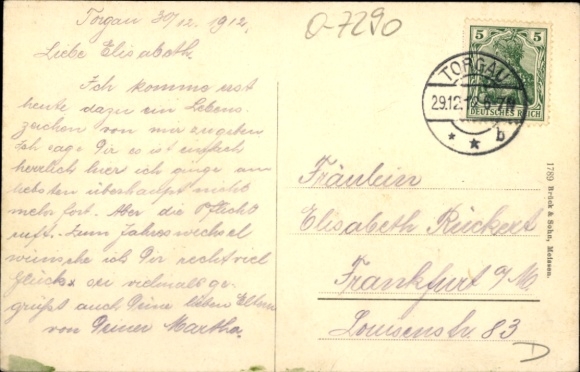 Torgau 30/12. 1912.
Liebe Elisabeth.
Ich komme erst
heute dazu ein Lebens-
zeichen von mir zu geben
Ich sage Dir es ist einfach
herrlich hier ich ginge am
liebsten überhaupt nicht
mehr fort. Aber die Pflicht
ruft. Zum Jahreswechsel
wünsche ich Dir recht viel
Glück. sei vielmals ge-
grüßt auch Deine lieben Eltern
von Deiner Martha.
0-7290
5 5
DEUTSCHES REICH
TORGAU
29.12.12 6-7N
* * b
Fräulein
Elisabeth Rückert
Frankfurt a/M.
Louisenstr. 83
D
1789 Brück & Sohn, Meissen.